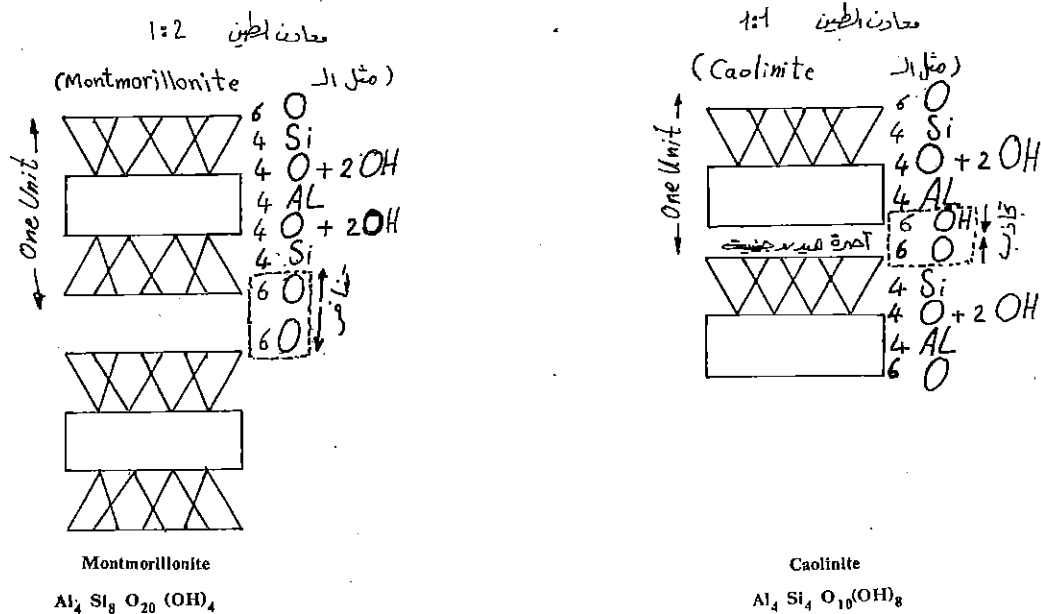 معادن الطين 1:2
(مثل الـ Montmorillonite)
One Unit
6 O
4 Si
4 O + 2 OH
4 AL
4 O + 2 OH
4 Si
6 O
6 O
تنافر
Montmorillonite
Al₄ Si₈ O₂₀ (OH)₄
معادن الطين 1:1
(مثل الـ Caolinite)
One Unit
6 O
4 Si
4 O + 2 OH
4 AL
6 OH
آصرة هيدروجينية
6 O
تجاذب
4 Si
4 O + 2 OH
4 AL
6 O
Caolinite
Al₄ Si₄ O₁₀(OH)₈